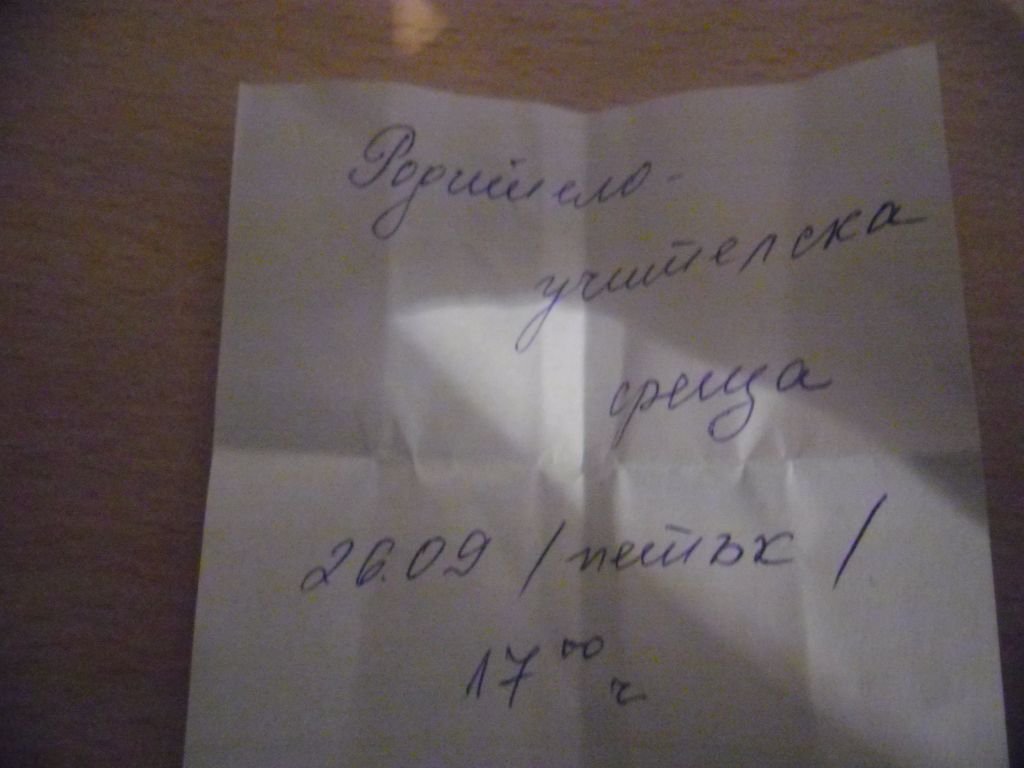 Родително-
учителска
среща
26.09 /петък/
17⁰⁰ ч